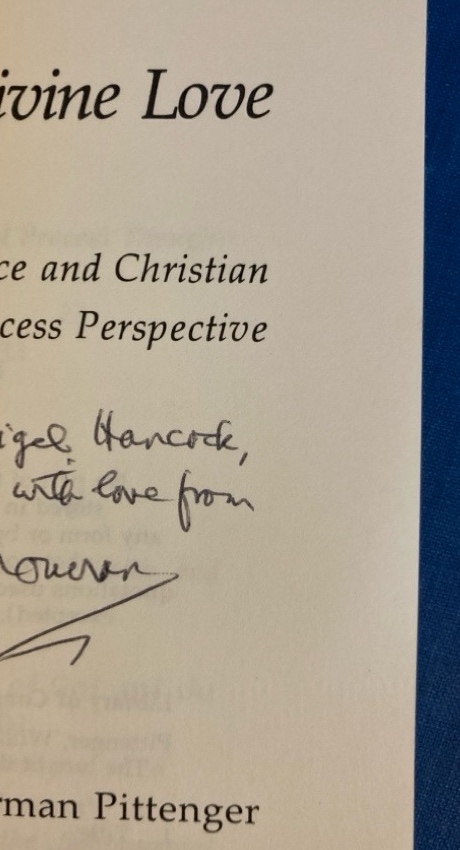 ivine Love
ce and Christian
cess Perspective
igel Hancock,
with love from
rman Pittenger